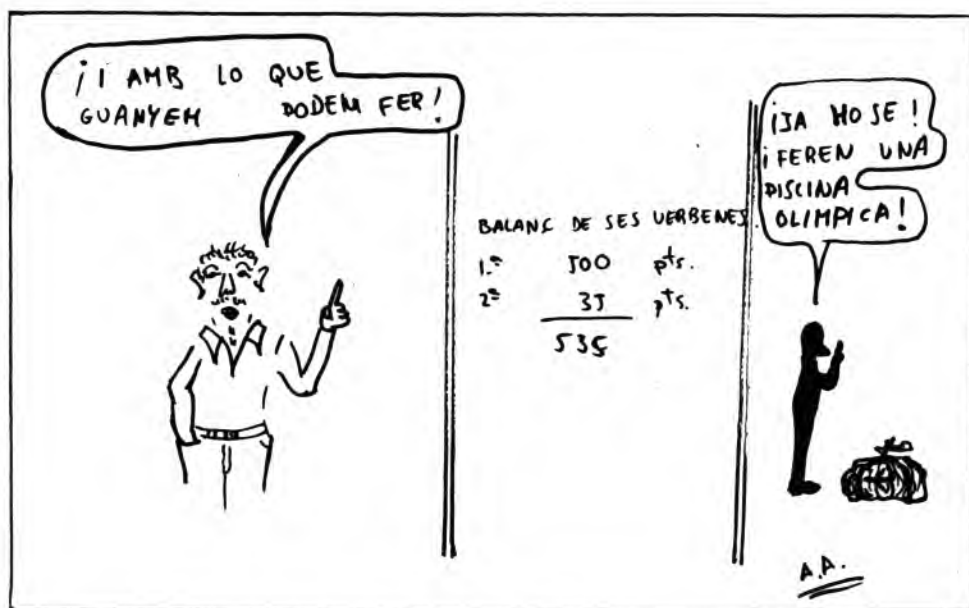 ¡I AMB LO QUE
GUANYEM PODEM FER!
BALANÇ DE SES VERBENES.
1.ª 500 pts.
2ª 35 pts.
535
¡JA HO SE!
¡FEREN UNA
PISCINA
OLIMPICA!
A.A.